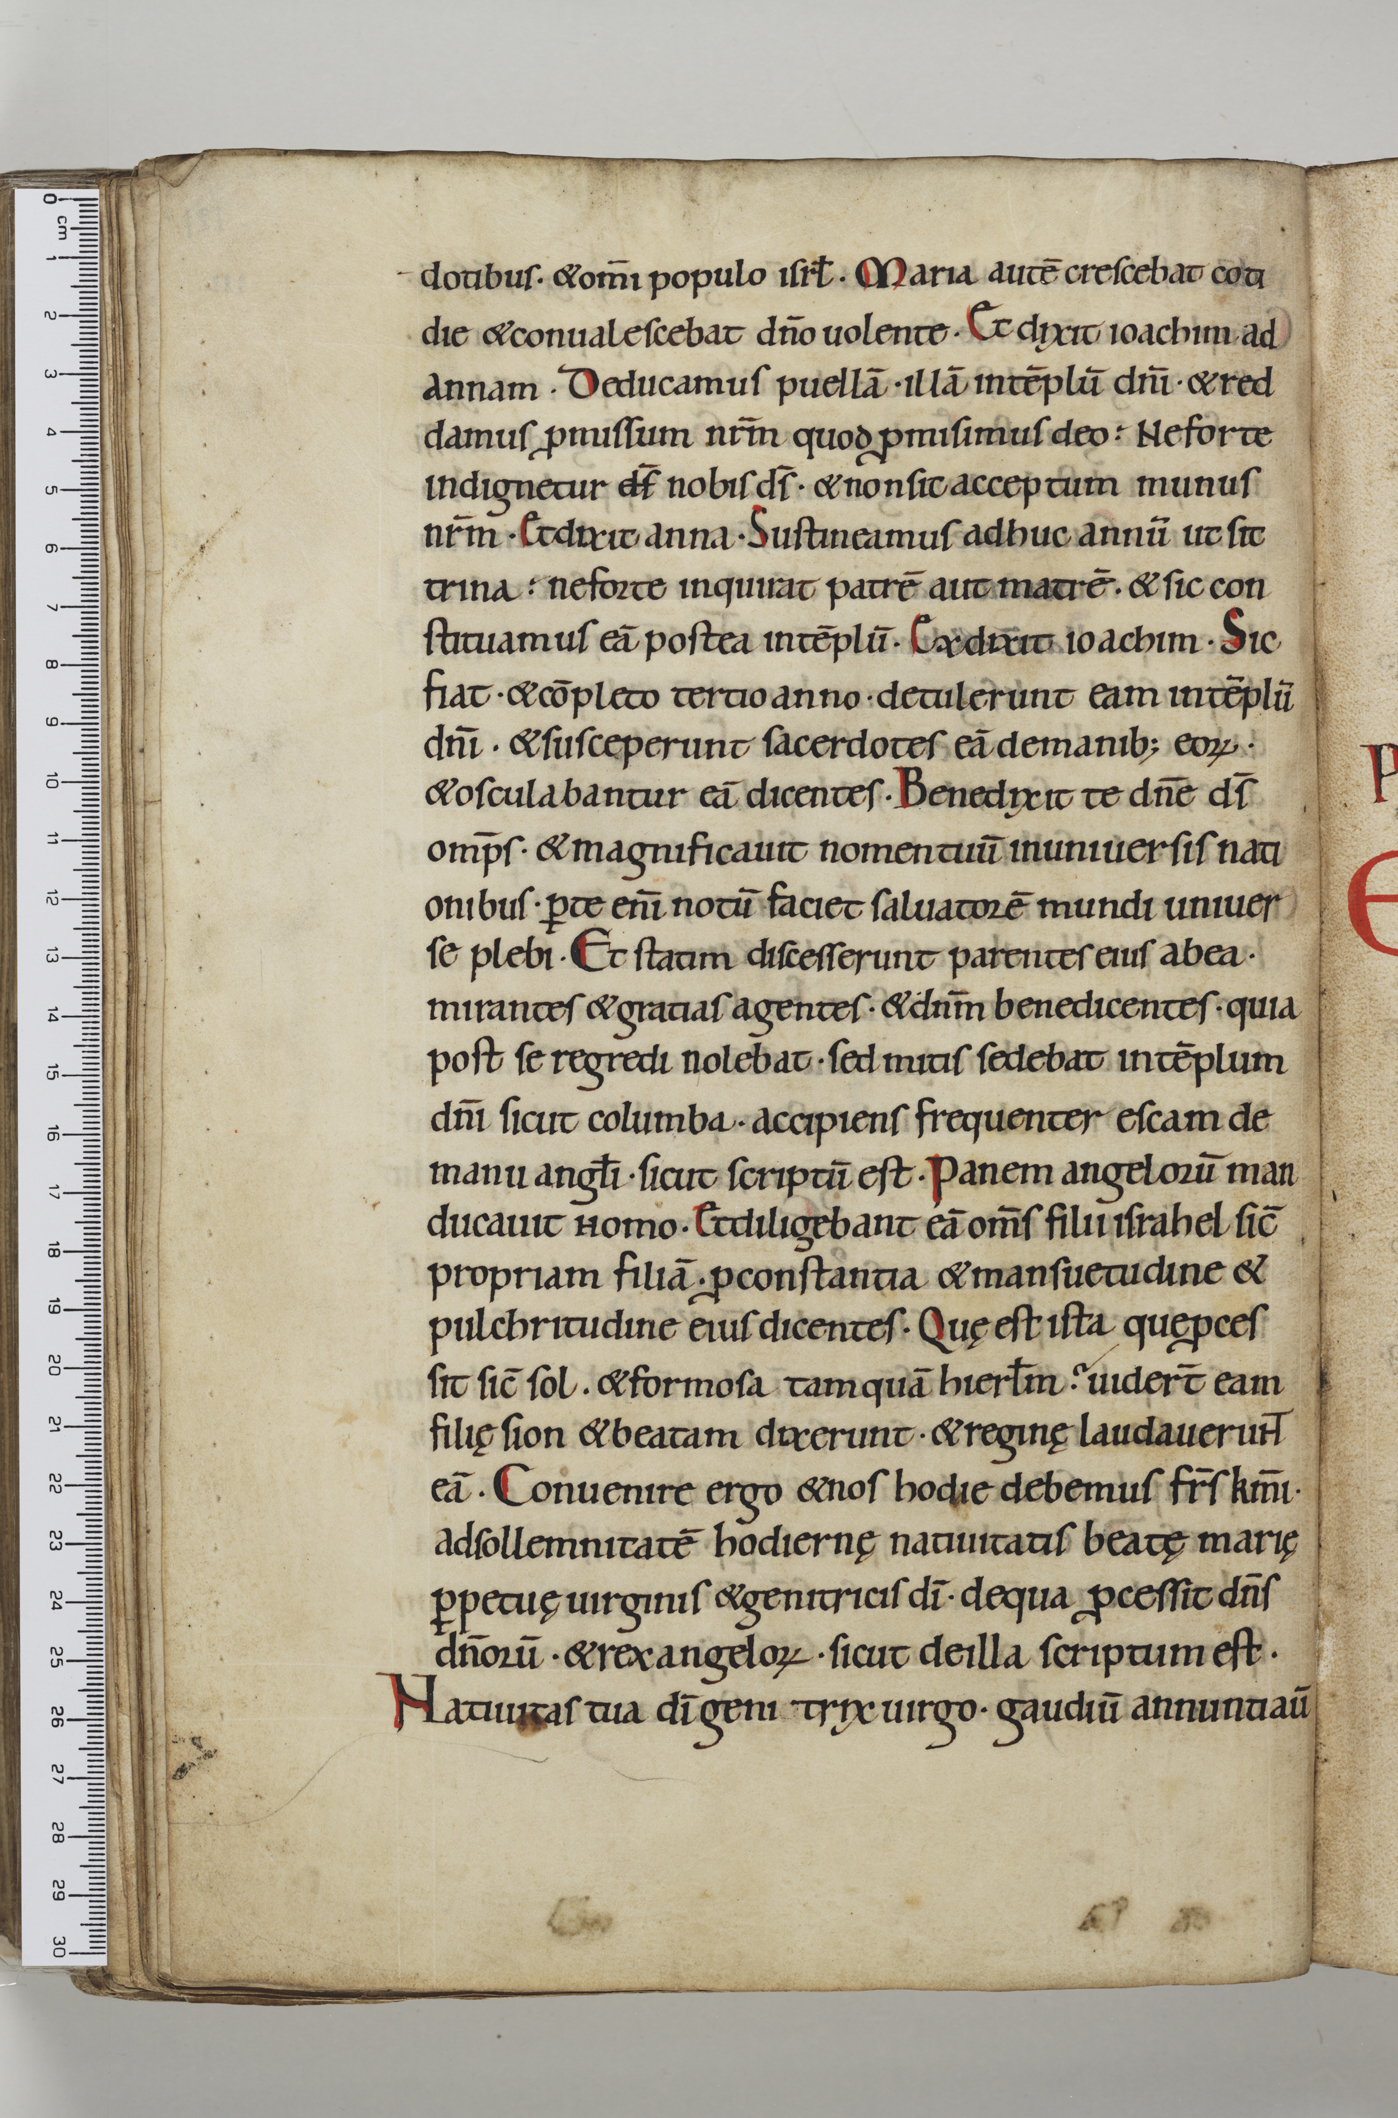 dotibus. &om̄i populo isrł. Maria autē crescebat coti
die &conualescebat dn̄o uolente. Et dixit ioachim ad
annam. Deducamus puellā. illā intēplū dn̄i. & red
damus ꝓmissum nr̄m quod ꝓmisimus deo: Neforte
indignetur ds̄ nobis ds̄. & nonsit acceptum munus
nr̄m. Etdixit anna. Sustineamus adhuc annū ut sit
trina: neforte inquirat patrē aut matrē. & sic con
stituamus eā postea intēplū. Exdixit ioachim. Sic
fiat. &cōpleto tertio anno. detulerunt eam intēplū
dn̄i. &susceperunt sacerdotes eā demanib; eoꝝ.
&osculabantur eā dicentes. Benedixit te dn̄e ds̄
omp̄s. &magnificauit nomentuū inuniuersis nati
onibus. ꝑte eni̅ notū faciet saluatorē mundi uniuer
se plebi. Et statim discesserunt parentes eius abea.
mirantes &gratias agentes. &dnm̄ benedicentes. quia
post se regredi nolebat. sed mitis sedebat intēplum
dn̄i sicut columba. accipiens frequenter escam de
manu angłi. sicut scriptū est. Panem angelorū man
ducauit homo. Etdiligebant eā om̄s filii israhel sic̄
propriam filiā. ꝓconstantia &mansuetudine &
pulchritudine eius dicentes. Quę est ista quęꝓces
sit sic̄ sol. &formosa tamquā hierłm? uider̄t eam
filię sion &beatam dixerunt. &reginę laudauerun̄t
eā. Conuenire ergo &nos hodie debemus fr̄s km̄i.
adsollemnitatē hodiernę natiuitatis beatę marię
ꝑpetuę uirginis &genitricis dī. dequa ꝓcessit dn̄s
dn̄orū. &rex angeloꝝ. sicut deilla scriptum est.
Natiuitas tua dī geni trix uirgo. gaudiū annuntiaū